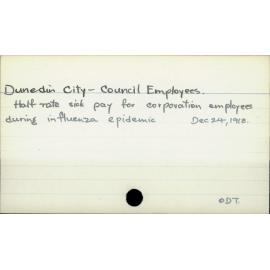 Dunedin City - Council Employees.
Half rate sick pay for corporation employees
during influenza epidemic Dec 24, 1918.
ODT.